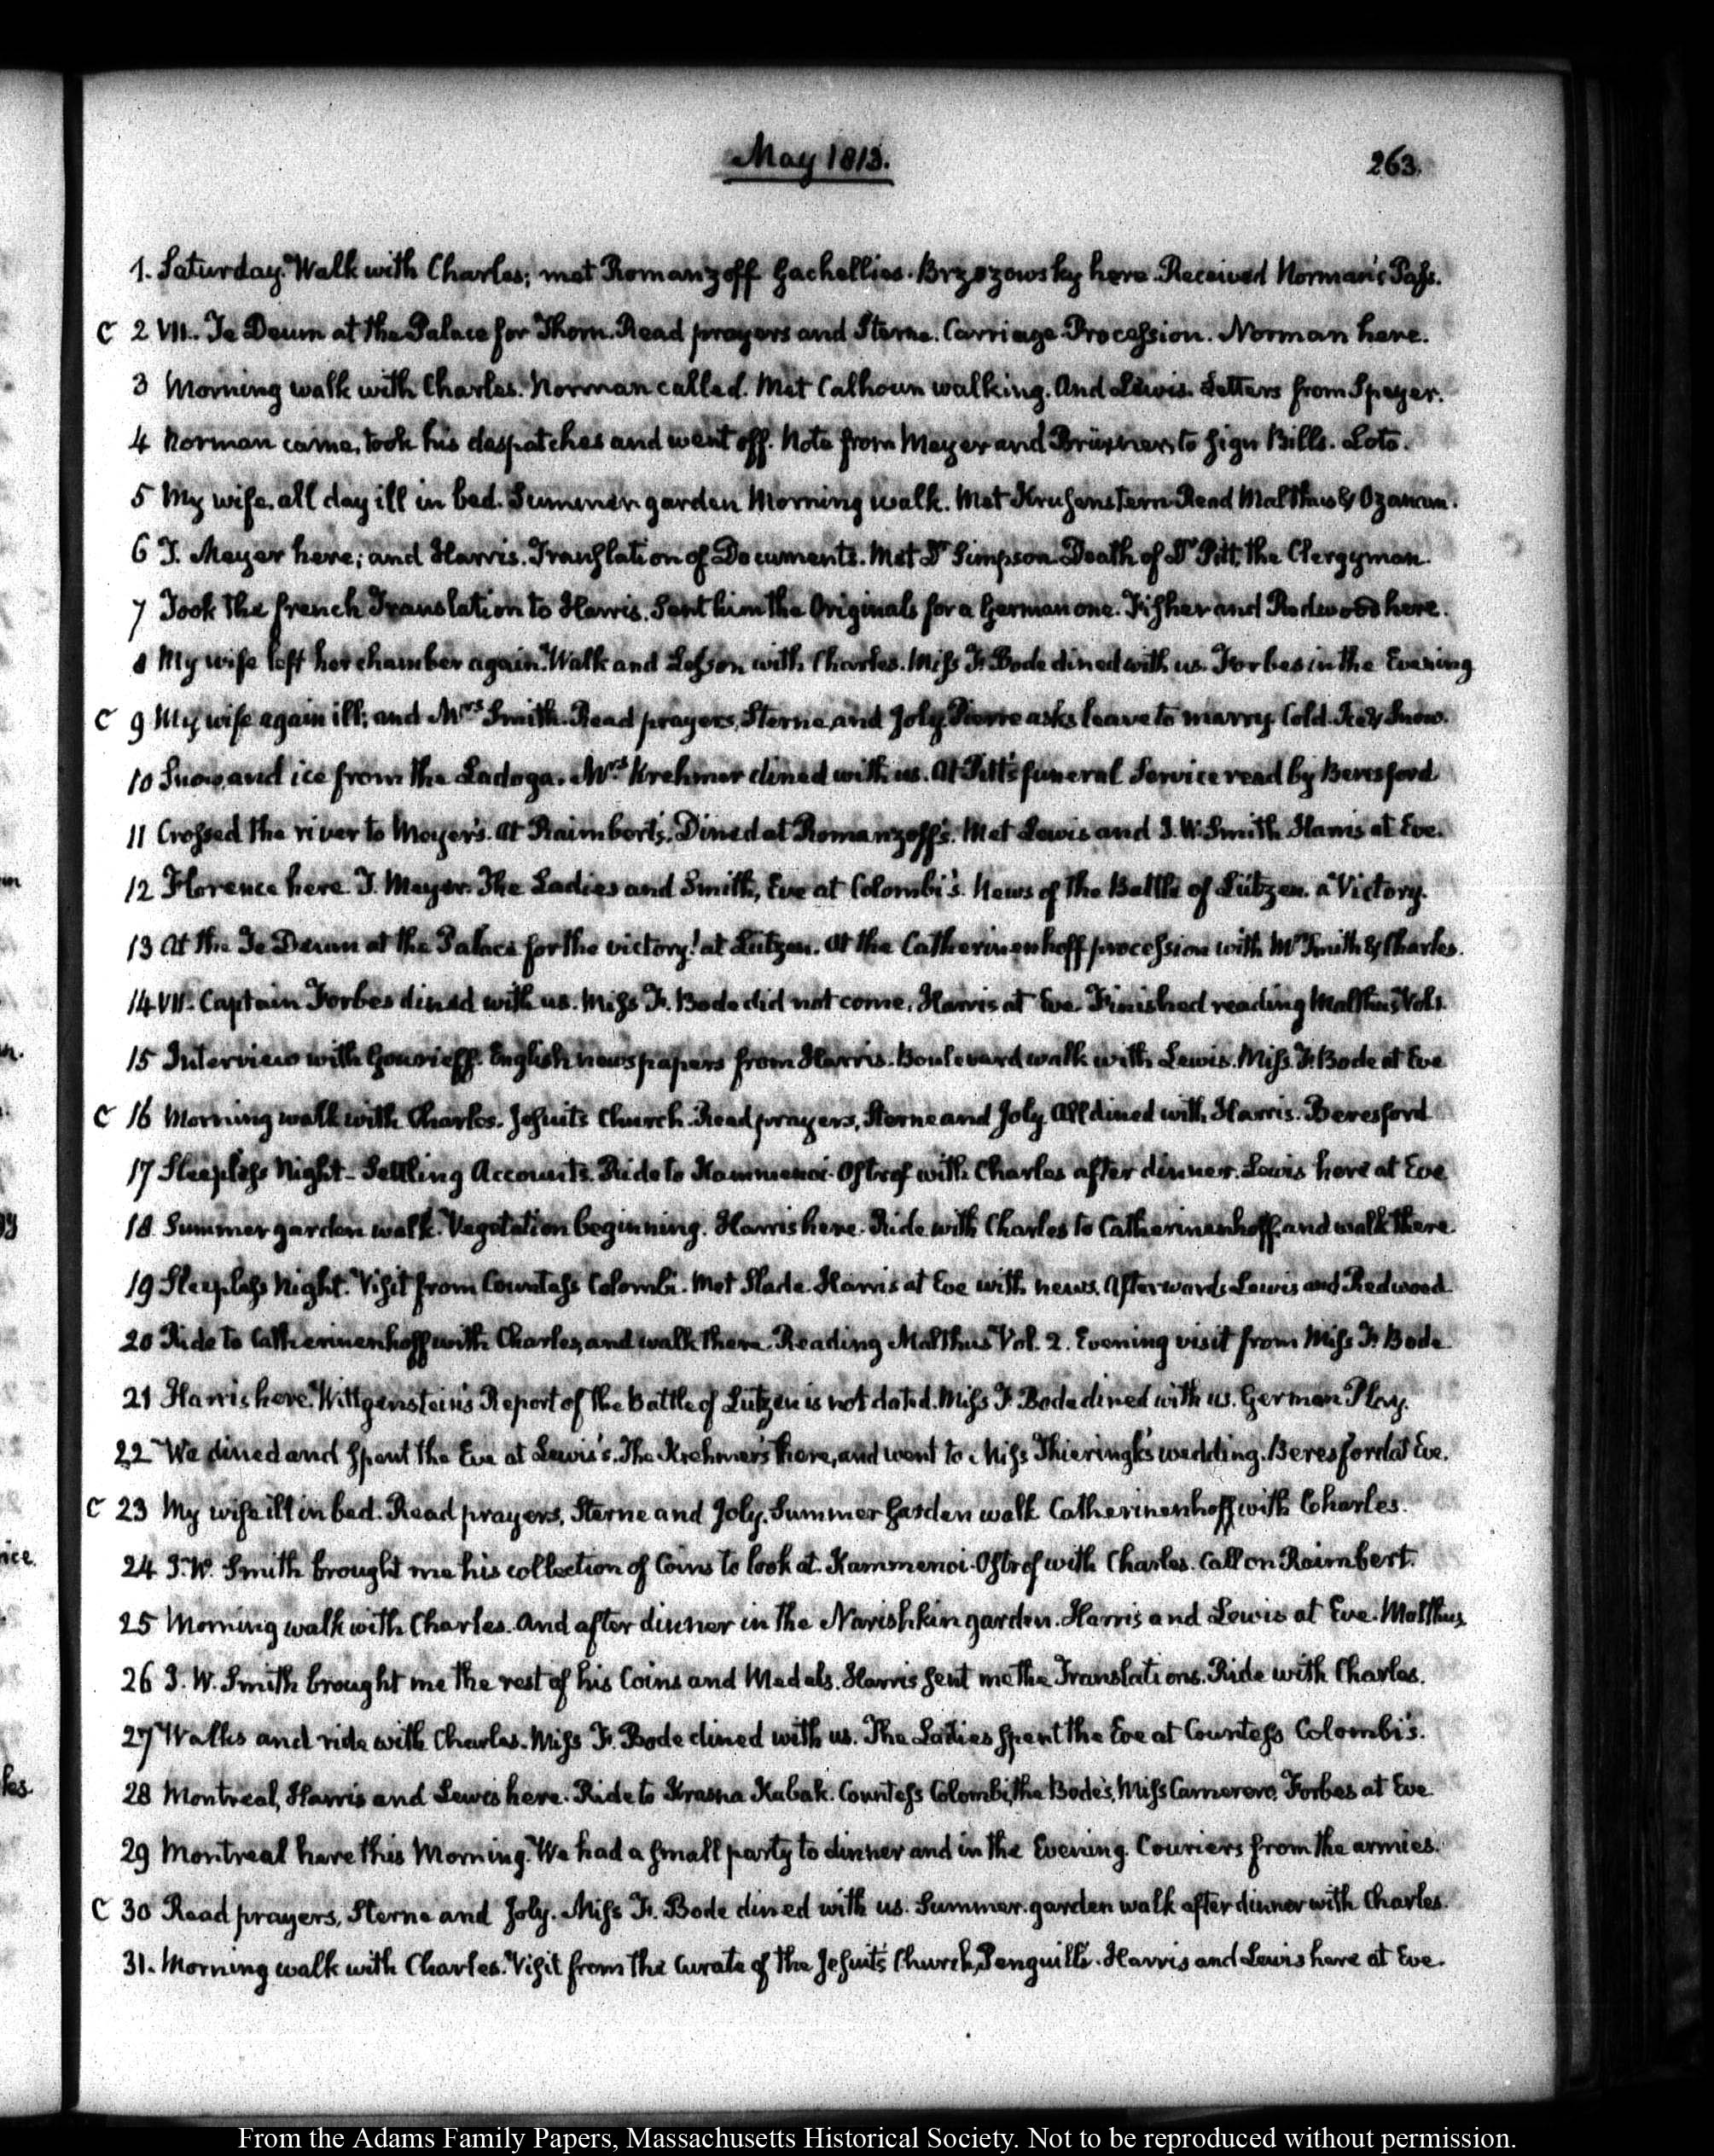 May 1813.
263.
1. Saturday. Walk with Charles; met Romanzoff Gachellies. Brzozowsky here. Received Norman's Pass.
C 2 VII. Te Deum at the Palace for Thorn. Read prayers and Sterne. Carriage Procession. Norman here.
3 Morning walk with Charles. Norman called. Met Calhoun walking. And Lewis. Letters from Speyer.
4 Norman came, took his despatches and went off. Note from Meyer and Brüxner, to sign Bills. Loto.
5 My wife all day ill in bed. Summer garden Morning walk. Met Krusenstern. Read Malthus & Ozanam.
6 T. Meyer here; and Harris. Translation of Documents. Met Dr Simpson. Death of Dr Pitt, the Clergyman.
7 Took the french Translation to Harris. Sent him the Originals for a German one. Fisher and Redwood here.
8 My wife left her chamber again. Walk and Lesson with Charles. Miss Fr. Bode dined with us. Forbes in the Evening
C 9 My wife again ill; and Mrs Smith. Read prayers, Sterne, and Joly. Pierre asks leave to marry. Cold. Ice & Snow.
10 Snow, and ice from the Ladoga. Mrs Krehmer dined with us. At Pitt's funeral Service read by Beresford
11 Crossed the river to Meyer's. At Raimbert's. Dined at Romanzoff's. Met Lewis and J. W. Smith. Harris at Eve.
12 Florence here. T. Meyer. The Ladies and Smith, Eve at Colombi's. News of the Battle of Lützen. a Victory.
13 At the Te Deum at the Palace for the victory! at Lützen. At the Catherinenhoff procession with Mr Smith & Charles.
14 VII. Captain Forbes dined with us. Miss Fr. Bode did not come. Harris at Eve. Finished reading Malthus Vol. 1.
15 Interview with Gourieff. English newspapers from Harris. Boulevard walk with Lewis. Miss Fr. Bode at Eve
C 16 Morning walk with Charles. Jesuits Church. Read prayers, Sterne and Joly. All dined with Harris. Beresford
17 Sleepless Night - Settling Accounts. Ride to Kammenoi-Ostrof with Charles after dinner. Lewis here at Eve
18. Summer garden walk. Vegetation beginning. Harris here. Ride with Charles to Catherinenhoff, and walk there.
19 Sleepless Night. Visit from Countess Colombi. Met Slade. Harris at Eve with news. Afterwards Lewis and Redwood
20 Ride to Catherinenhoff with Charles, and walk there. Reading Malthus Vol. 2. Evening visit from Miss Fr. Bode.
21 Harris here. Wittgenstein's Report of the Battle of Lützen is not dated. Miss Fr. Bode dined with us. German Play.
22 We dined and spent the Eve at Lewis's. The Krehmer's here, and went to Miss Thieringk's wedding. Beresford at Eve.
C 23 My wife ill in bed. Read prayers, Sterne and Joly. Summer Garden walk. Catherinenhoff with Charles.
24 J. W. Smith brought me his collection of Coins to look at. Kammenoi-Ostrof with Charles. Call on Raimbert.
25 Morning walk with Charles. And after dinner in the Narishkin garden. Harris and Lewis at Eve. Malthus
26 J. W. Smith brought me the rest of his Coins and Medals. Harris sent me the Translations. Ride with Charles.
27 Walks and ride with Charles. Miss Fr. Bode dined with us. The Ladies spent the Eve at Countess Colombi's.
28 Montreal, Harris and Lewis here. Ride to Krasna Kabak. Countess Colombi, the Bode's, Miss Camerero, Forbes at Eve
29 Montreal here this Morning. We had a small party to dinner and in the Evening. Couriers from the armies.
C 30 Read prayers, Sterne and Joly. Miss Fr. Bode dined with us. Summer-garden walk after dinner with Charles.
31. Morning walk with Charles. Visit from the Curate of the Jesuits Church, Penguilli. Harris and Lewis here at Eve.
From the Adams Family Papers, Massachusetts Historical Society. Not to be reproduced without permission.